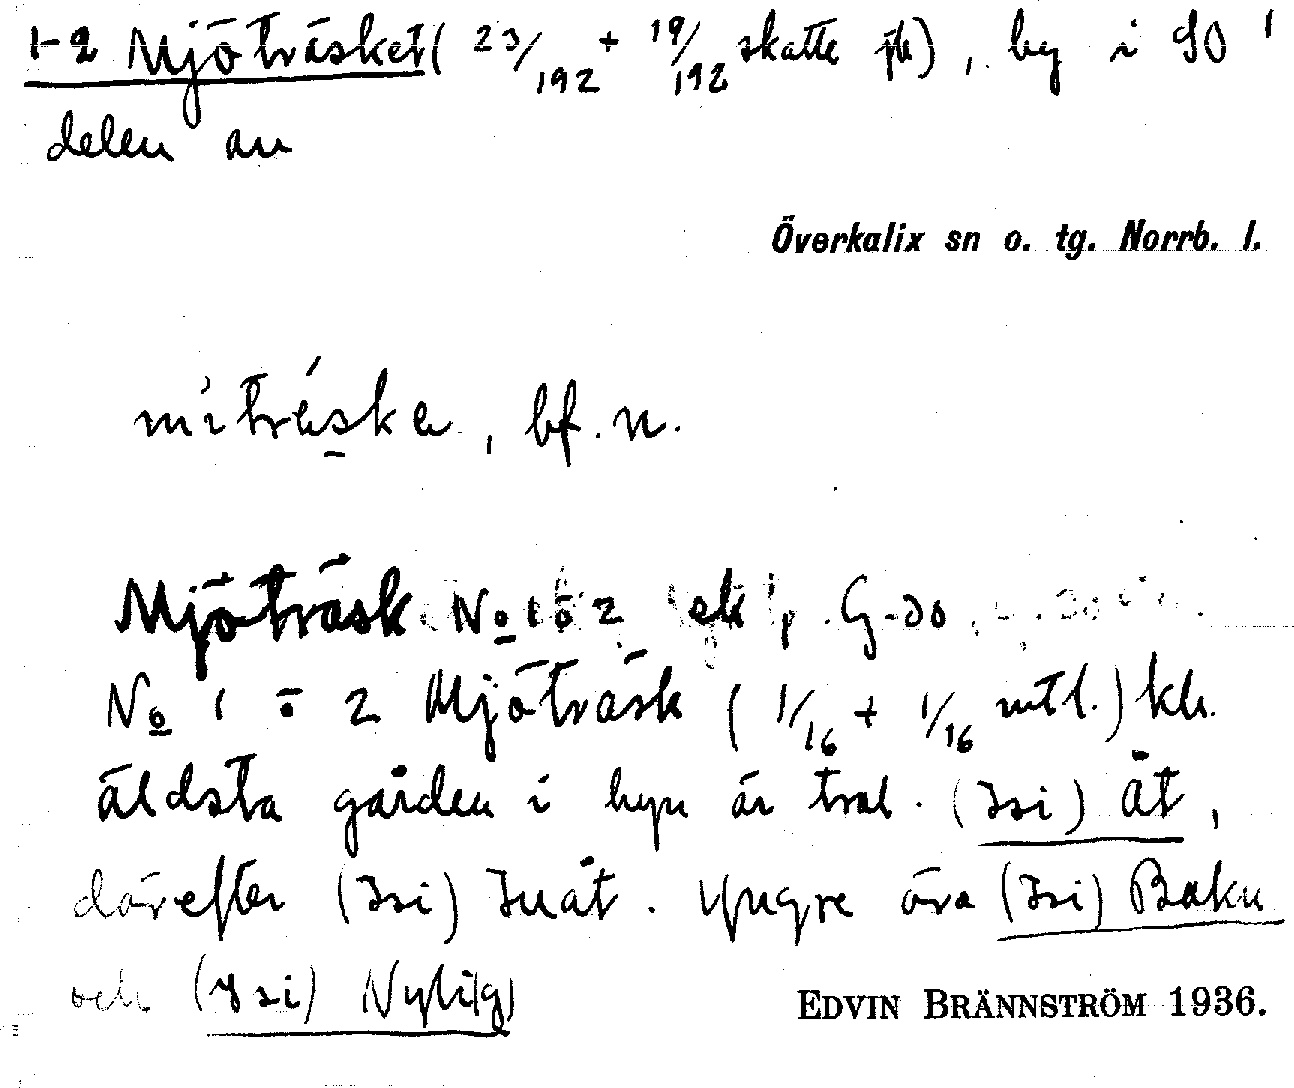 1-2 Mjöträsket ( 23/192 + 19/192 skatte , by i SO
delen av
Överkalix sn o. tg. Norrb. l.
mìtráska, bf. n.
Mjöträsk No 1 o 2 ek G-do
No 1 o 2 Mjöträsk ( 1/16 + 1/16 mtl. )
äldsta gården i byn är trol. (Isi) åt,
därefter (Isi) Inåt. Yngre äro (Isi) Baku
och (Isi) Nyli(g)
EDVIN BRÄNNSTRÖM 1936.